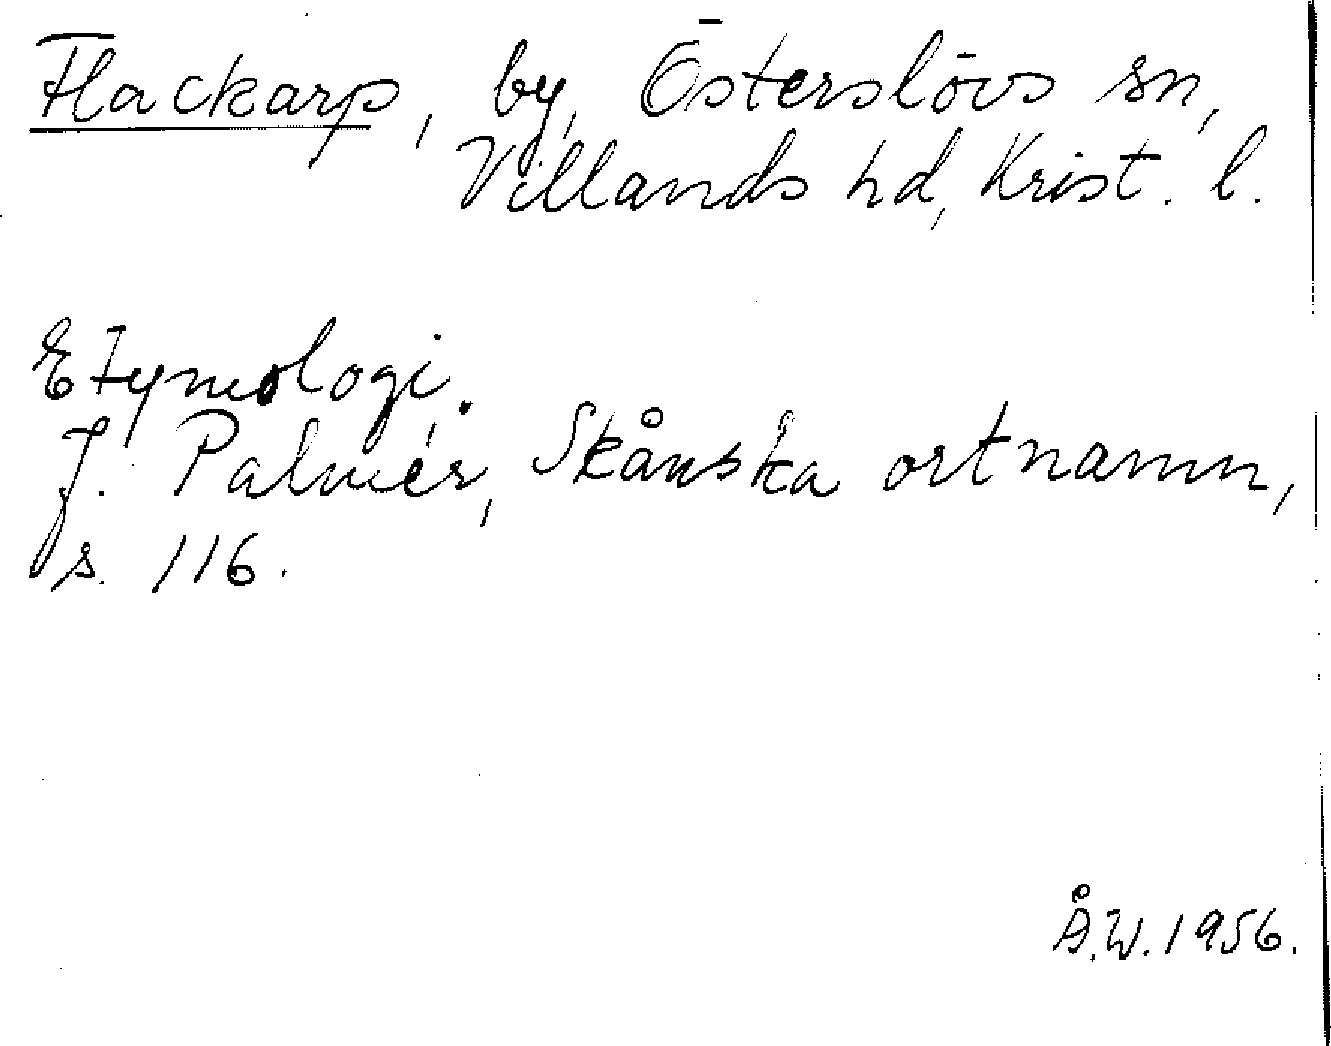 Flackarp, by, Österslövs sn,
Villands hd, Krist. l.
Etymologi.
J. Palmér, Skånska ortnamn,
s. 116.
Å.W. 1956.